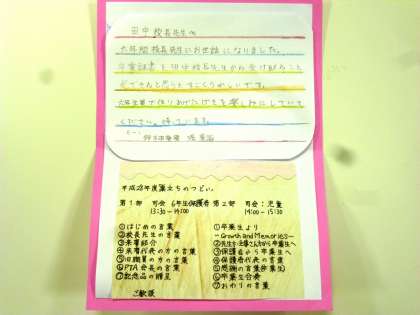 田中 校長先生へ
六年間校長先生にお世話になりました。
卒業証書を田中校長先生から受け取ること
ができると思うとすごくうれしいです。
ください。待っています。
平成28年度巣立ちのつどい
第1部 司会 6年生保護者 第2部 司会:児童
13:30~14:00 14:00~15:30
①はじめの言葉
②校長先生の言葉
③来賓紹介
④来賓代表の方の言葉
⑤旧職員の方の言葉
⑥PTA会長の言葉
⑦記念品の贈呈
①卒業生より
~Growth and Memories~
③保護者から卒業生へ
④保護者代表の言葉
⑤感謝の言葉(卒業生)
⑥卒業生合奏
⑦おわりの言葉